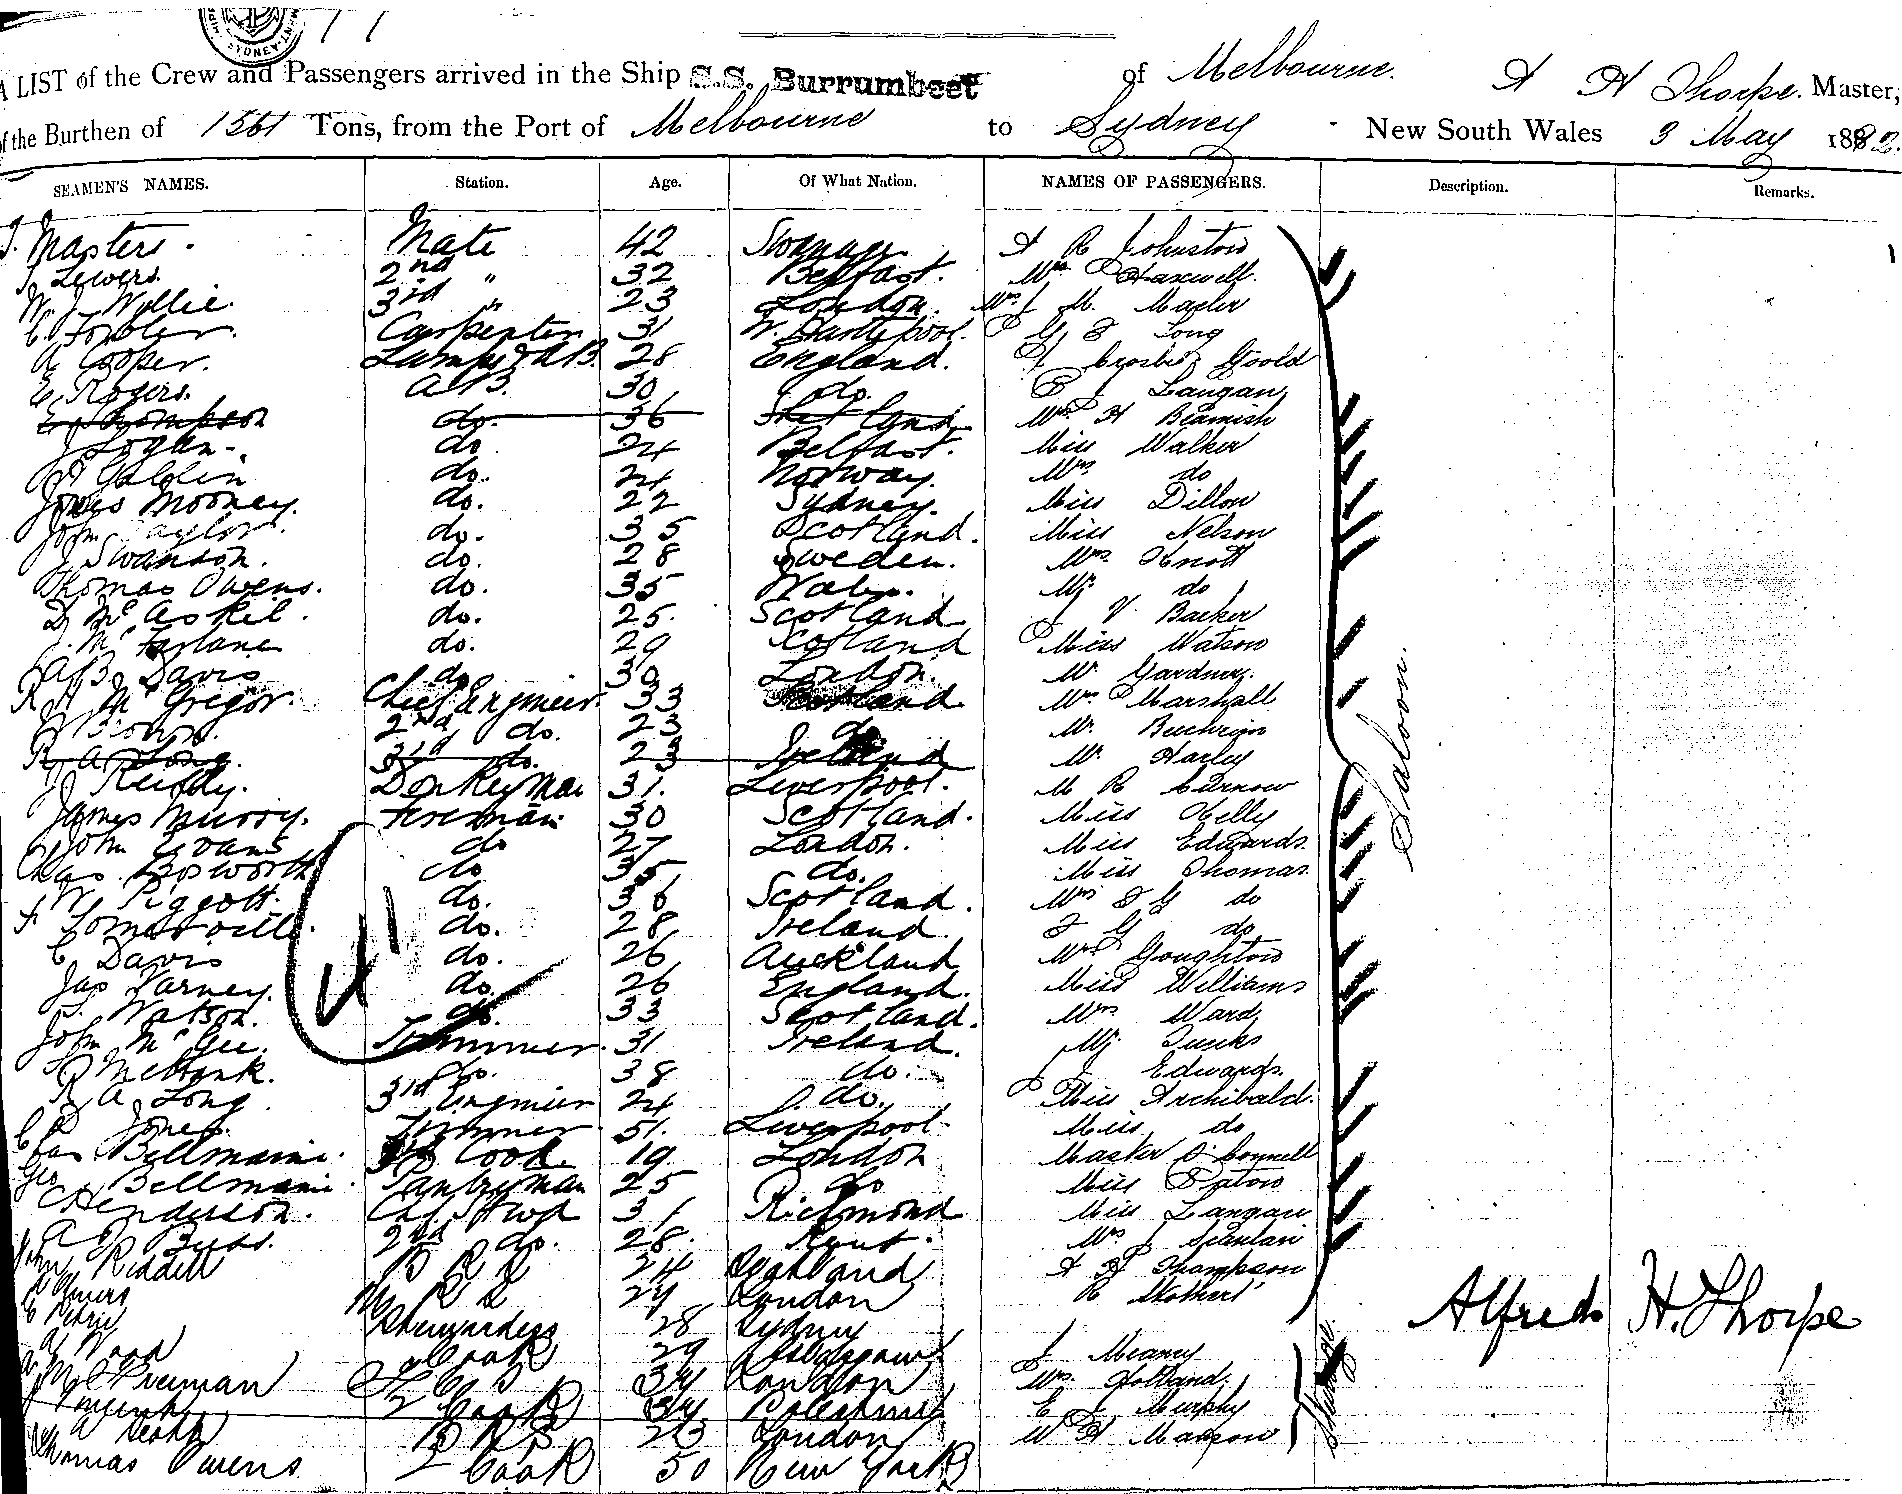 SYDNEY
A LIST of the Crew and Passengers arrived in the Ship S.S. Burrumbeet of Melbourne. A H Thorpe. Master,
of the Burthen of 1561 Tons, from the Port of Melbourne to Sydney New South Wales 3 May 1882.
SEAMEN'S NAMES. Station. Age. Of What Nation. NAMES OF PASSENGERS. Description. Remarks.
Masters. Mate 42 Swanage A R Johnston
Lewers. 2nd " 32 Belfast. Mrs Haxwell.
W. J. Wyllie. 3rd " 23 London. M.
C. Tobler. Carpenter 31 W. Hartlepool. G Long
A Cooper. Lamps & A.B. 28 England. Crosbie Goold
E. Rogers. A B. 30 do. Langan
Thompson do. 36 Shetland Mrs H Beamish
J Logan. do 24 Belfast. Miss Walker
do. 24 Norway. Mrs do
James Mooney. do. 22 Sydney. Miss Dillon
John Taylor. do. 35 Scotland. Miss Nelson
J Swanson. do. 28 Sweden. Mrs Knott
Thomas Owens. do. 35 Wales. Mr do
D McAskil. do. 25. Scotland V. Barker
McFarlane do. 29 Scotland Miss Watson
A B Davis do. 30 London. Mr Gardner.
R H McGregor. Chief Engineer. 33 Scotland Mrs Marshall
2nd do. 23 do. Mr.
R. A. Long. 3rd do. 23 Ireland Mr. Harley
J Reidy. Donkeyman 31. Liverpool. M R Curnow
James Murry. Fireman 30 Scotland. Miss Kelly
John Evans do 27 London. Miss Edwards.
Chas. Bosworth do 35 do. Miss Thomas.
W. Piggott. do. 36 Scotland. Mrs F G do
do. 28 Ireland. F G do
C Davis do. 26 Auckland Mrs Goughton
Jas Varney. do. 26 England. Miss Williams
Watson. do. 33 Scotland. Mrs Ward,
John McGee. Trimmer. 31 Ireland. Mr.
do. 38 do. J Edwards.
R A Long. 3rd Engineer 24 do. Miss Archibald.
Jones. Trimmer 51. Liverpool. Miss do
Chas Bellmaine. Cook 19. London Master O'Connell
Geo Bellmaine. Pantryman 25 do Miss Paton
C Henderson. Chf Stwd 31 Richmond Miss Langan
A J Buss. 2nd do. 28. Kent. Mrs J Scanlan
John Riddell 24 Oakland A H Thompson
24 London R
Petrie Stewardess 28 Sydney
A Wood Cook 29 Glasgow J Meaney
Freeman 34 London Mrs Holland,
Cook 34 E J Murphy
23 London W H
Thomas Owens 2 Cook 50 New York
Saloon.
Steerage.
Alfred H. Thorpe